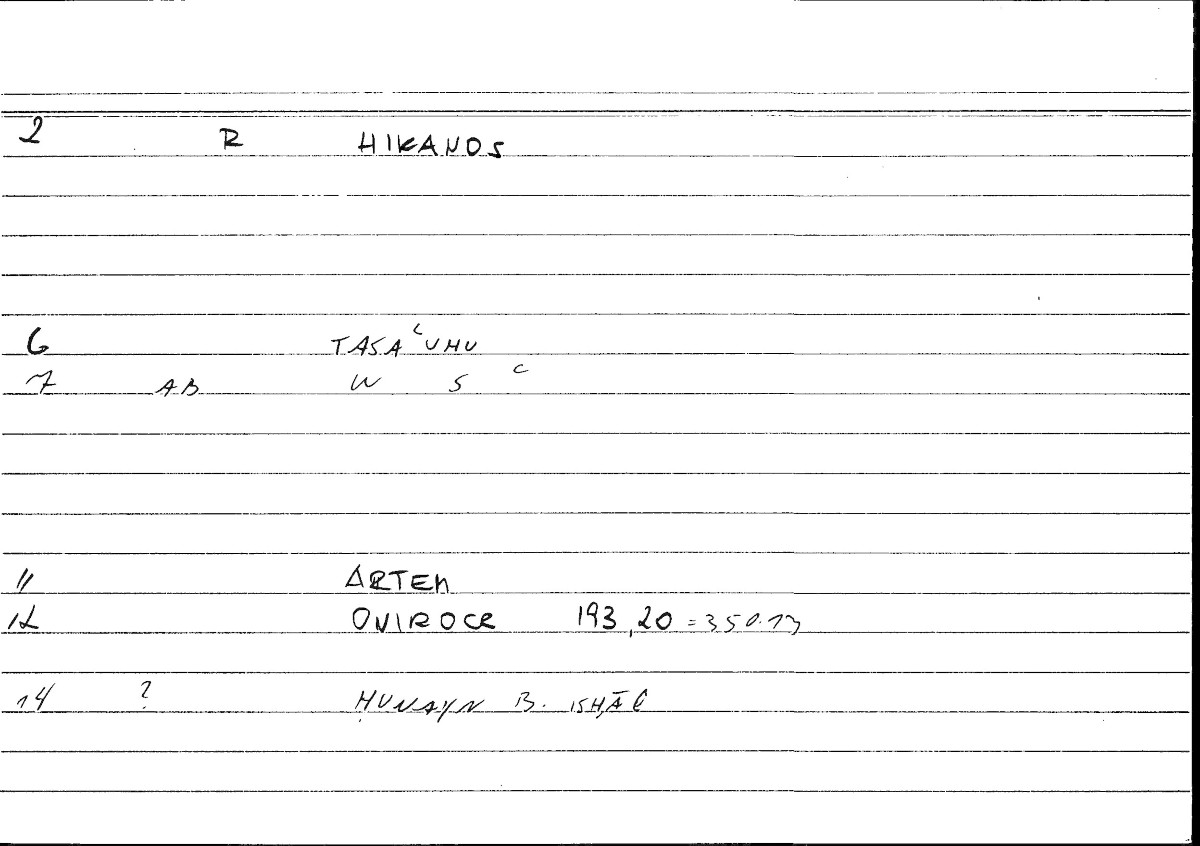 2 R HIKANOS
6 TASAʿUHU
7 AB W S ʿ
11 ARTEM
12 ONIROCR 193,20 = 350.13
14 ? ḤUNAYN B. ISḤĀQ